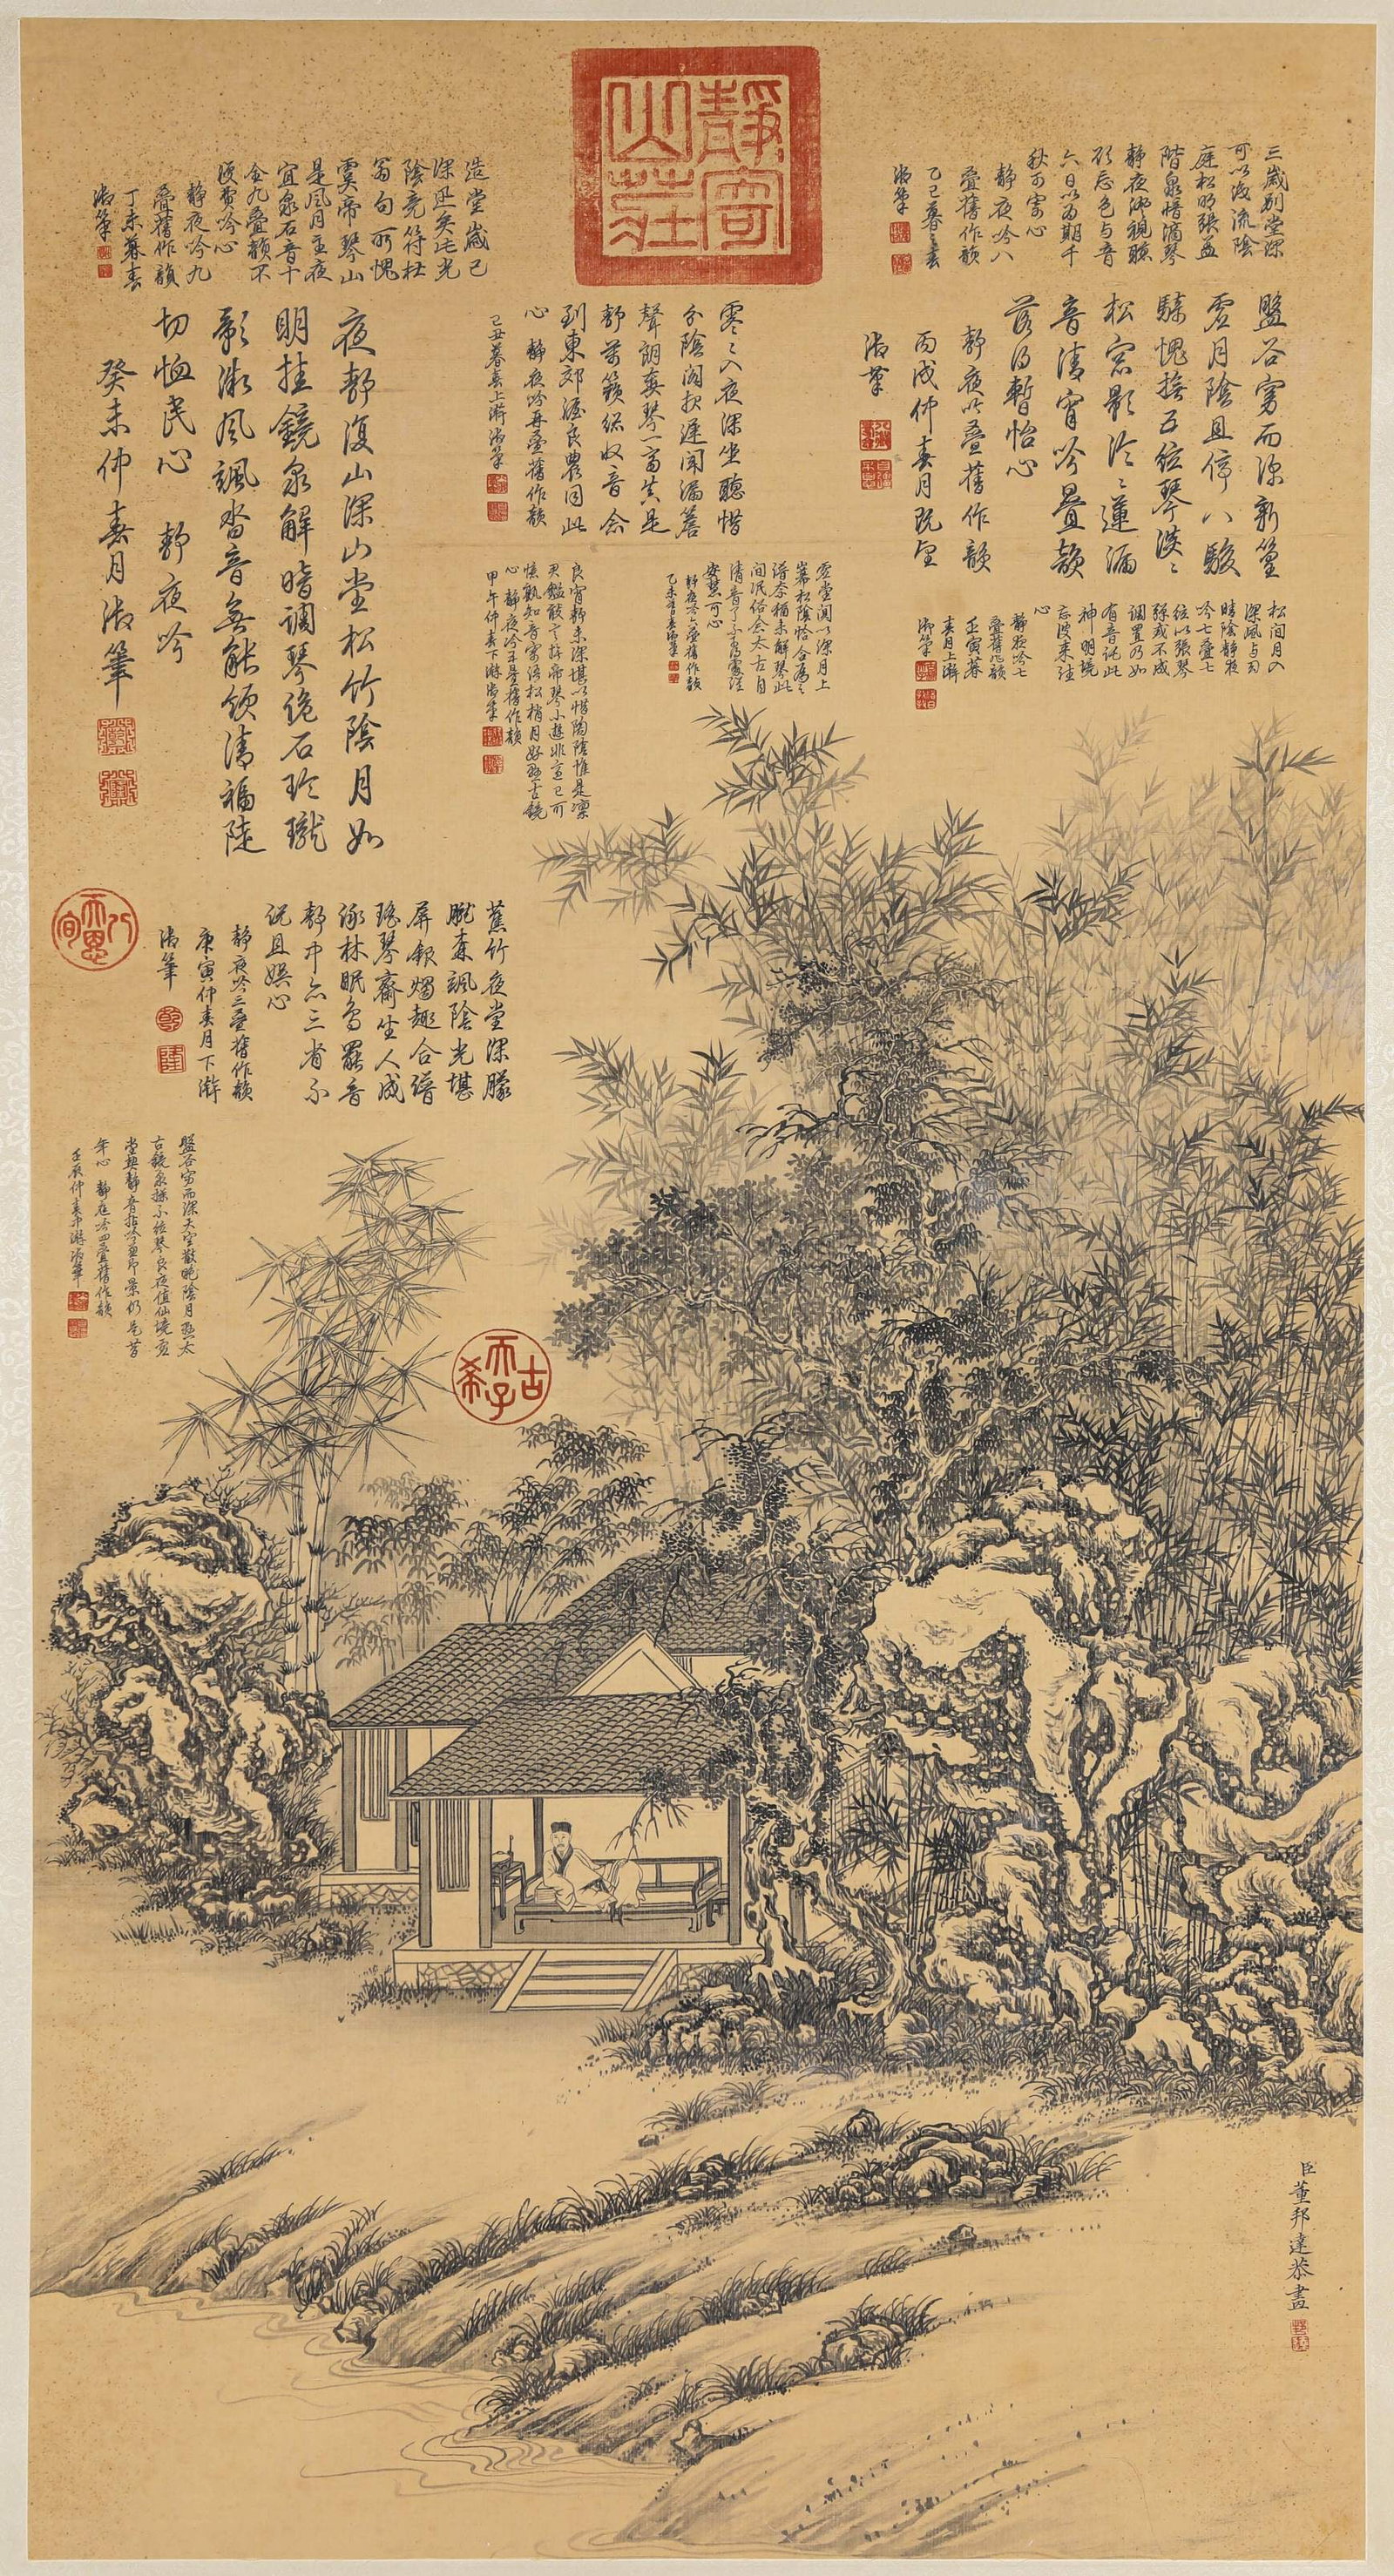 靜寄山莊
三歲別堂深
可以淺流陰
庭松明張蓋
階泉暗滴琴
靜夜視聽
忘色与音
六日以為期千
秋可寄心
靜夜吟八
疊舊作韻
乙巳暮春
御筆
盤谷窈而深新篁
虛月陰且停八駿
騑愧撫五絃琴淡〻
松窓影泠〻蓮漏
音清宵吟疊韻
落得暫怡心
靜夜吟疊舊作韻
丙戌仲春月既望
御筆
松間月入
深風与
晴陰靜夜
吟七疊七
絃以張琴
弦或不成
調置乃如
有音託此
神明境
忘彼來往
心
靜夜吟七
疊舊作韻
壬寅暮
春月上澣
御筆
寥〻入夜深坐聽惜
分陰閣遲聞漏簷
聲朗奏琴一真是
靜萬籟収音念
到東郊渥良農同此
心 靜夜吟再疊舊作韻
己丑暮春上澣御筆
虛堂閴以深月上
松陰恰合為之
譜奈未解琴此
間泯俗念太古自
清音了不為塵
可心
靜夜吟六疊舊作韻
乙未暮春御筆
良宵靜未深堪以惜陶陰惟是凜
君鑑敢云辨帝琴小遊非已可
孰知音寄語松梢月好古鏡
心 靜夜吟五疊舊作韻
甲午仲春下澣御筆
造堂歲已
深迅矣詫光
陰竟符杜
翁句所愧
虞帝琴山
是風月重夜
宜泉石音十
全九疊韻不
須費吟心
靜夜吟九
疊舊作韻
丁未暮春
御筆
夜靜復山深山堂松竹陰月如
明挂鏡泉解暗調琴絶石玲瓏
影微風颯沓音無能領清福陡
切恤民心 靜夜吟
癸未仲春月御筆
八徵耄念
蕉竹夜堂深朦
朧森颯陰光堪
屏銀燭趣合譜
瑤琴齋坐人成
林眠鳥罷音
靜中忘三者不
説且娛心
靜夜吟三疊舊作韻
庚寅仲春月下澣
御筆
盤谷窈而深天空散晚陰月懸太
古鏡泉操不絃琴良夜值仙境虛
堂契靜音拈吟即景仍是昔
年心 靜夜吟四疊舊作韻
壬辰仲春中澣御筆
古希天子
臣董邦達恭畫